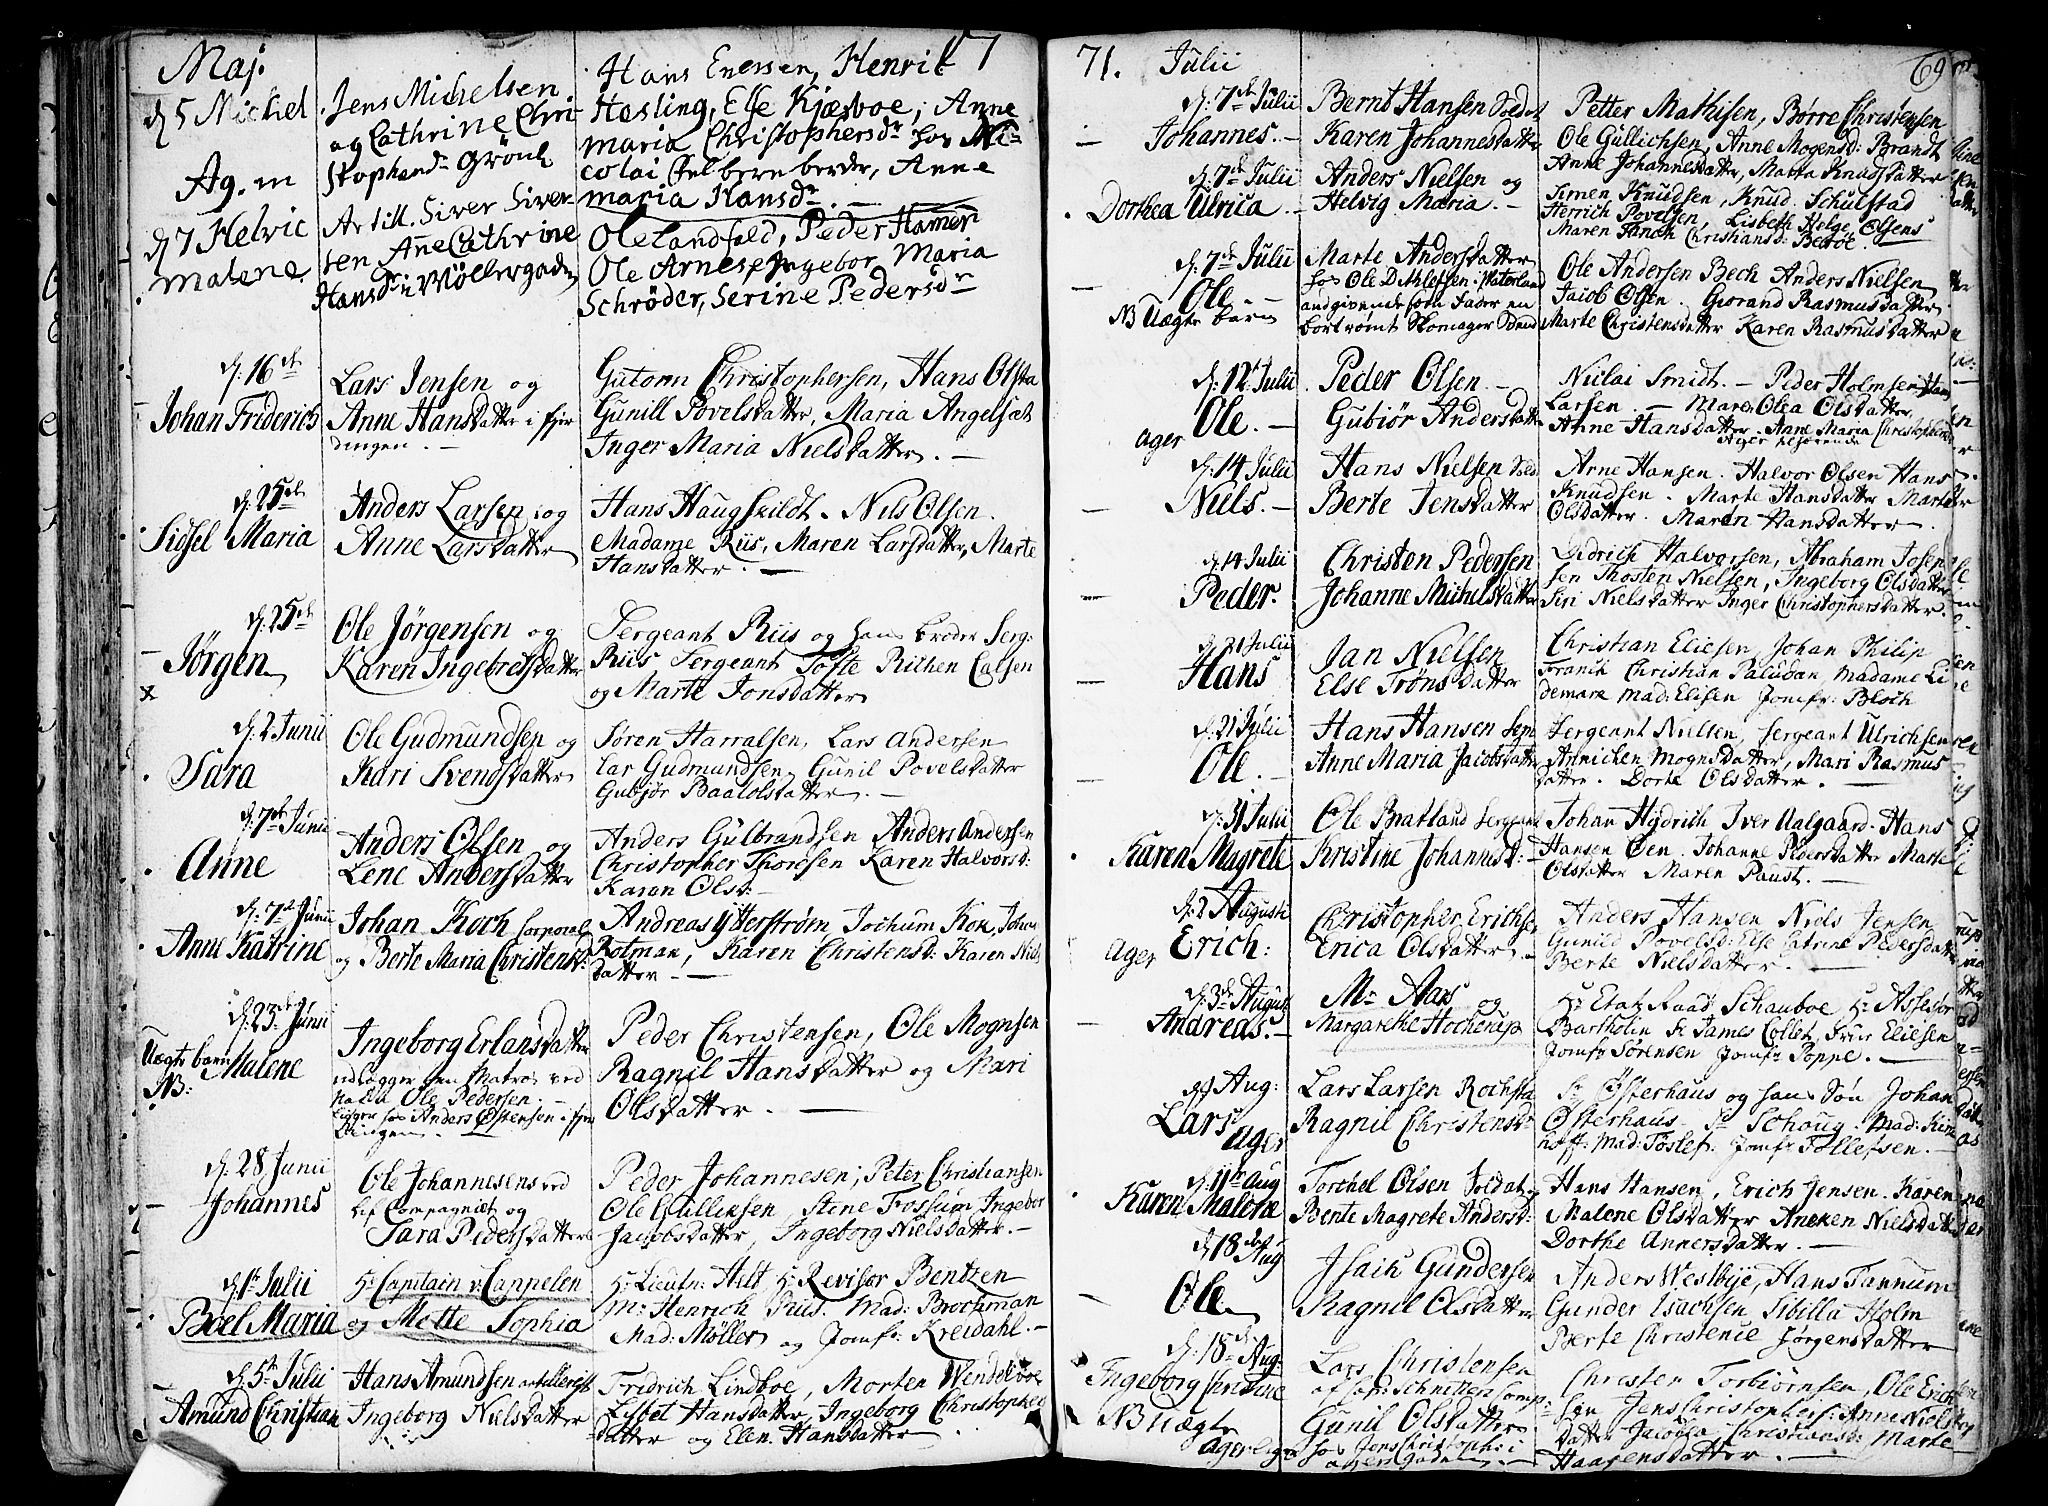 Maj.
17
d 5 Michel
Jens Michelsen
og Cathrine Chri
stophersd: Grönl
Hans Enersen, Henrik
Hesling, Else Kjæsboe, Anne
maria Christophersdr hos Ni=
colai
maria Hansdr. —
Ag. m
d 7 Helvic
Malene
Artill. Siver Siver
sen Anne Cathrine
Hansdr i Möllergaden
Ole Landfald, Peder Hamer
Ole Arnesen Ingebor, Maria
Schrøder, Serine Pedersdr
d: 16de
Johan Friderich
Lars Jensen og
Anne Hansdatter i fjer
dingen. —
Gutorm Christophersen, Hans Olsta
Gunill Povelsdatter, Maria Angelsæt
Inger Maria Nielsdatter. —
d: 25de
Sidsel Maria
Anders Larsen og
Anne Larsdatter
Hans Haugskildt. Nils Olsen.
Madame Riis, Maren Larsdatter, Marte
Hansdatter. —
d: 25de
Jørgen
x
Ole Jørgensen og
Karen Ingebretsdatter
Sergeant Riis og hans broder Serg:
Riis Sergeant Tofte Rithen Calsen
og Marte Jonsdatter
d: 2 Junii
Sara
Ole Gudmundsen og
Kari Svendsdatter
Søren Harralsen, Lars Andersen
Lar Gudmundsen, Gunil Povelsdatter
Gubjør Baatolsdatter. —
d: 7de Junii
Anne
Anders Olsen og
Lene Andersdatter
Anders Gulbrandsen Anders Andersen
Christopher Thoresen Karen Halvorsd:
Karen Olsd: —
d: 7de Junii
Anne Katrine
Johan Koch Corporal
og Berte Maria Christensd:
Andreas Ytterstrøm, Jochum Kok, Johan
Rotman, Karen Christensd: Karen Niels
datter — —
d: 23de Junii
Uægte barn Malene
NB:
Ingeborg Erlandsdatter
udlegger en Matros ved
Navn Ole Pedersen. —
ligger hos Anders Østensen i fjer
dingen. —
Peder Christensen, Ole Mognsen
Ragnil Hansdatter og Mari
Olsdatter. —
d: 28 Junii
Johannes
Ole Johannesens ved
lif Compagniet og
Sara Pedersdatter
Peder Johannesen, Peter Christiansen
Ole Gulliksen, Stene Fossum, Ingebor
Jacobsdatter, Ingeborg Nielsdatter. —
d 1te Julii
Boel Maria
Hr Capitain v: Cappelen
og Mette Sophia
Hr Lieutn: Helt Hr Revisor Bentzen
Mr Henrich Riis. Mad: Brochman
Mad: Møller og Jomfr: Kreidahl. —
d 5te Julii
Amund Christian
Hans Amundsen artillerist
Ingeborg Nielsdatter
Fridrich Lindboe, Morten Wendelboe
Lisbet Hansdatter, Ingeborg Christopher
datter og Ellen Hansdatter.
71. Julii
69
d: 7de Julii
Johannes. —
Bernt Hansen Soldat
Karen Johannesdatter
Petter Mathisen, Børre Christensen
Ole Gullichsen, Anne Mogensd: Brandt
Anne Johannesdatter, Marta Knudsdatter
d: 7de Julii
Dorthea Ulrica. —
Anders Nielsen og
Helvig Maria. —
Simen Knudsen, Knud Schulstad
Herrich Povelsen, Lisbeth Helge Olsens
Maren Christiansd: Betvø
d: 7de Julii
Ole. —
NB Uægte barn
Marte Andersdatter
hos Ole Dethlefsen i Waterland
andgivende som Fader en
bortrømt Skomager Svend
Ole Andersen Bech Anders Nielsen
Jacob Olsen. Giorand Rasmusdatter
Marte Christensdatter Karen Rasmusdatter
d: 12 Julii
Ole. —
Ager
Peder Olsen. —
Gubiør Andersdatter
Niclai Smidt. — Peder Holmsen Hans
Larsen. — Maren Olea Olsdatter,
Anne Hansdatter. Anne Maria Christophersd
Ager
d: 14 Julii
Niels. —
Hans Nielsen Sold
Berte Jensdatter
Arne Hansen. Halvor Olsen Hans
Knudsen. Marte Hansdatter Marte
Olsdatter. Maren Hansdatter.
d 14 Julii
Peder.
Christen Pedersen
Johanne Michelsdatter
Didrich Halvorsen, Abraham Josen
sen Thosten Nielsen, Ingeborg Olsdatter
Siri Nielsdatter Inger Christophersdatter.
d. 21 Julii
Hans
Jan Nielsen
Else Trønsdatter
Christian Eliesen, Johan Philip
Franck Christian Paludan, Madame Li
demark Mad: Elisen Jomfr: Bloch
d. 21 Julii
Ole. —
Hans Hansen Sem
Anne Maria Jacobsdatter
Sergeant Nielsen, Sergeant Ulrichsen
Annichen Mognsdatter, Mari Rasmus
datter. Dorte Olsdatter. —
d. 31 Julii
Karen Magrete
Ole Bratland Sergeant
Kristine Johannisd: —
Johan Hydrich Iver Aalgaard. Hans
Hansen Øen. Johanne Pedersdatter Marte
Olsdatter Maren Paust. —
d: 2 Augusti
Ager Erich:
Christopher Erichsen
Erica Olsdatter. —
Anders Hansen Niels Jensen
Gunild Povelsd: Else Catrine Pedersdatter
Berte Nielsdatter. —
d: 3de August
Andreas. —
Mr Aars og
Margarethe Hocherup
Hr Etats Raad Schauboe, Hr Assessor
Bartholin Hr James Collet, Frue Eliesen
Jomfr Sørensen Jomfr Poppe. —
d Aug:
Lars
Ager
Lars Larsen Rochsta
Ragnil Christensdr
Sr Østerhaus og hans Søn Johan
Osterhaus Sr Schoug. Mad: Kirk
hoff: Mad: Toslef. Jomfr Tollefsen. —
d. 11te Aug
Karen Malene
Torchel Olsen Soldat
Berte Magrete Andersd:
Hans Hansen, Erich Jensen. Karen
Malene Olsdatter Aneken Nielsdatter
Dorthe Annersdatter. —
d 18de Aug
Ole
Isach Gundersen
Ragnil Olsdatter
Anders Westbye, Hans Tannum
Gunder Isachsen, Sibilla Holm
Berte Christence Jørgensdatter
d: 18de Aug:
Ingeborg Christine
NB Uægte
Ager
Lars Christensen
af Capt: Schnitters Comp:
Gunil Olsdatter
hos Jens Christophs: i
Christen Torbiørnsen, Ole Erich
sen Jens Christophers: Anne Niels
datter Jacobea Christiansd: Marte
Haagensdatter —